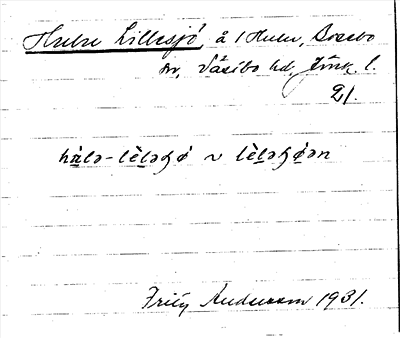 Hulu Lillesjö å 1 Hulu, Bosebo
sn, Västbo hd, Jönk. l.
21.
hùlə-lèləɧø ~ lèləɧøən
Fritz Andersson 1931.